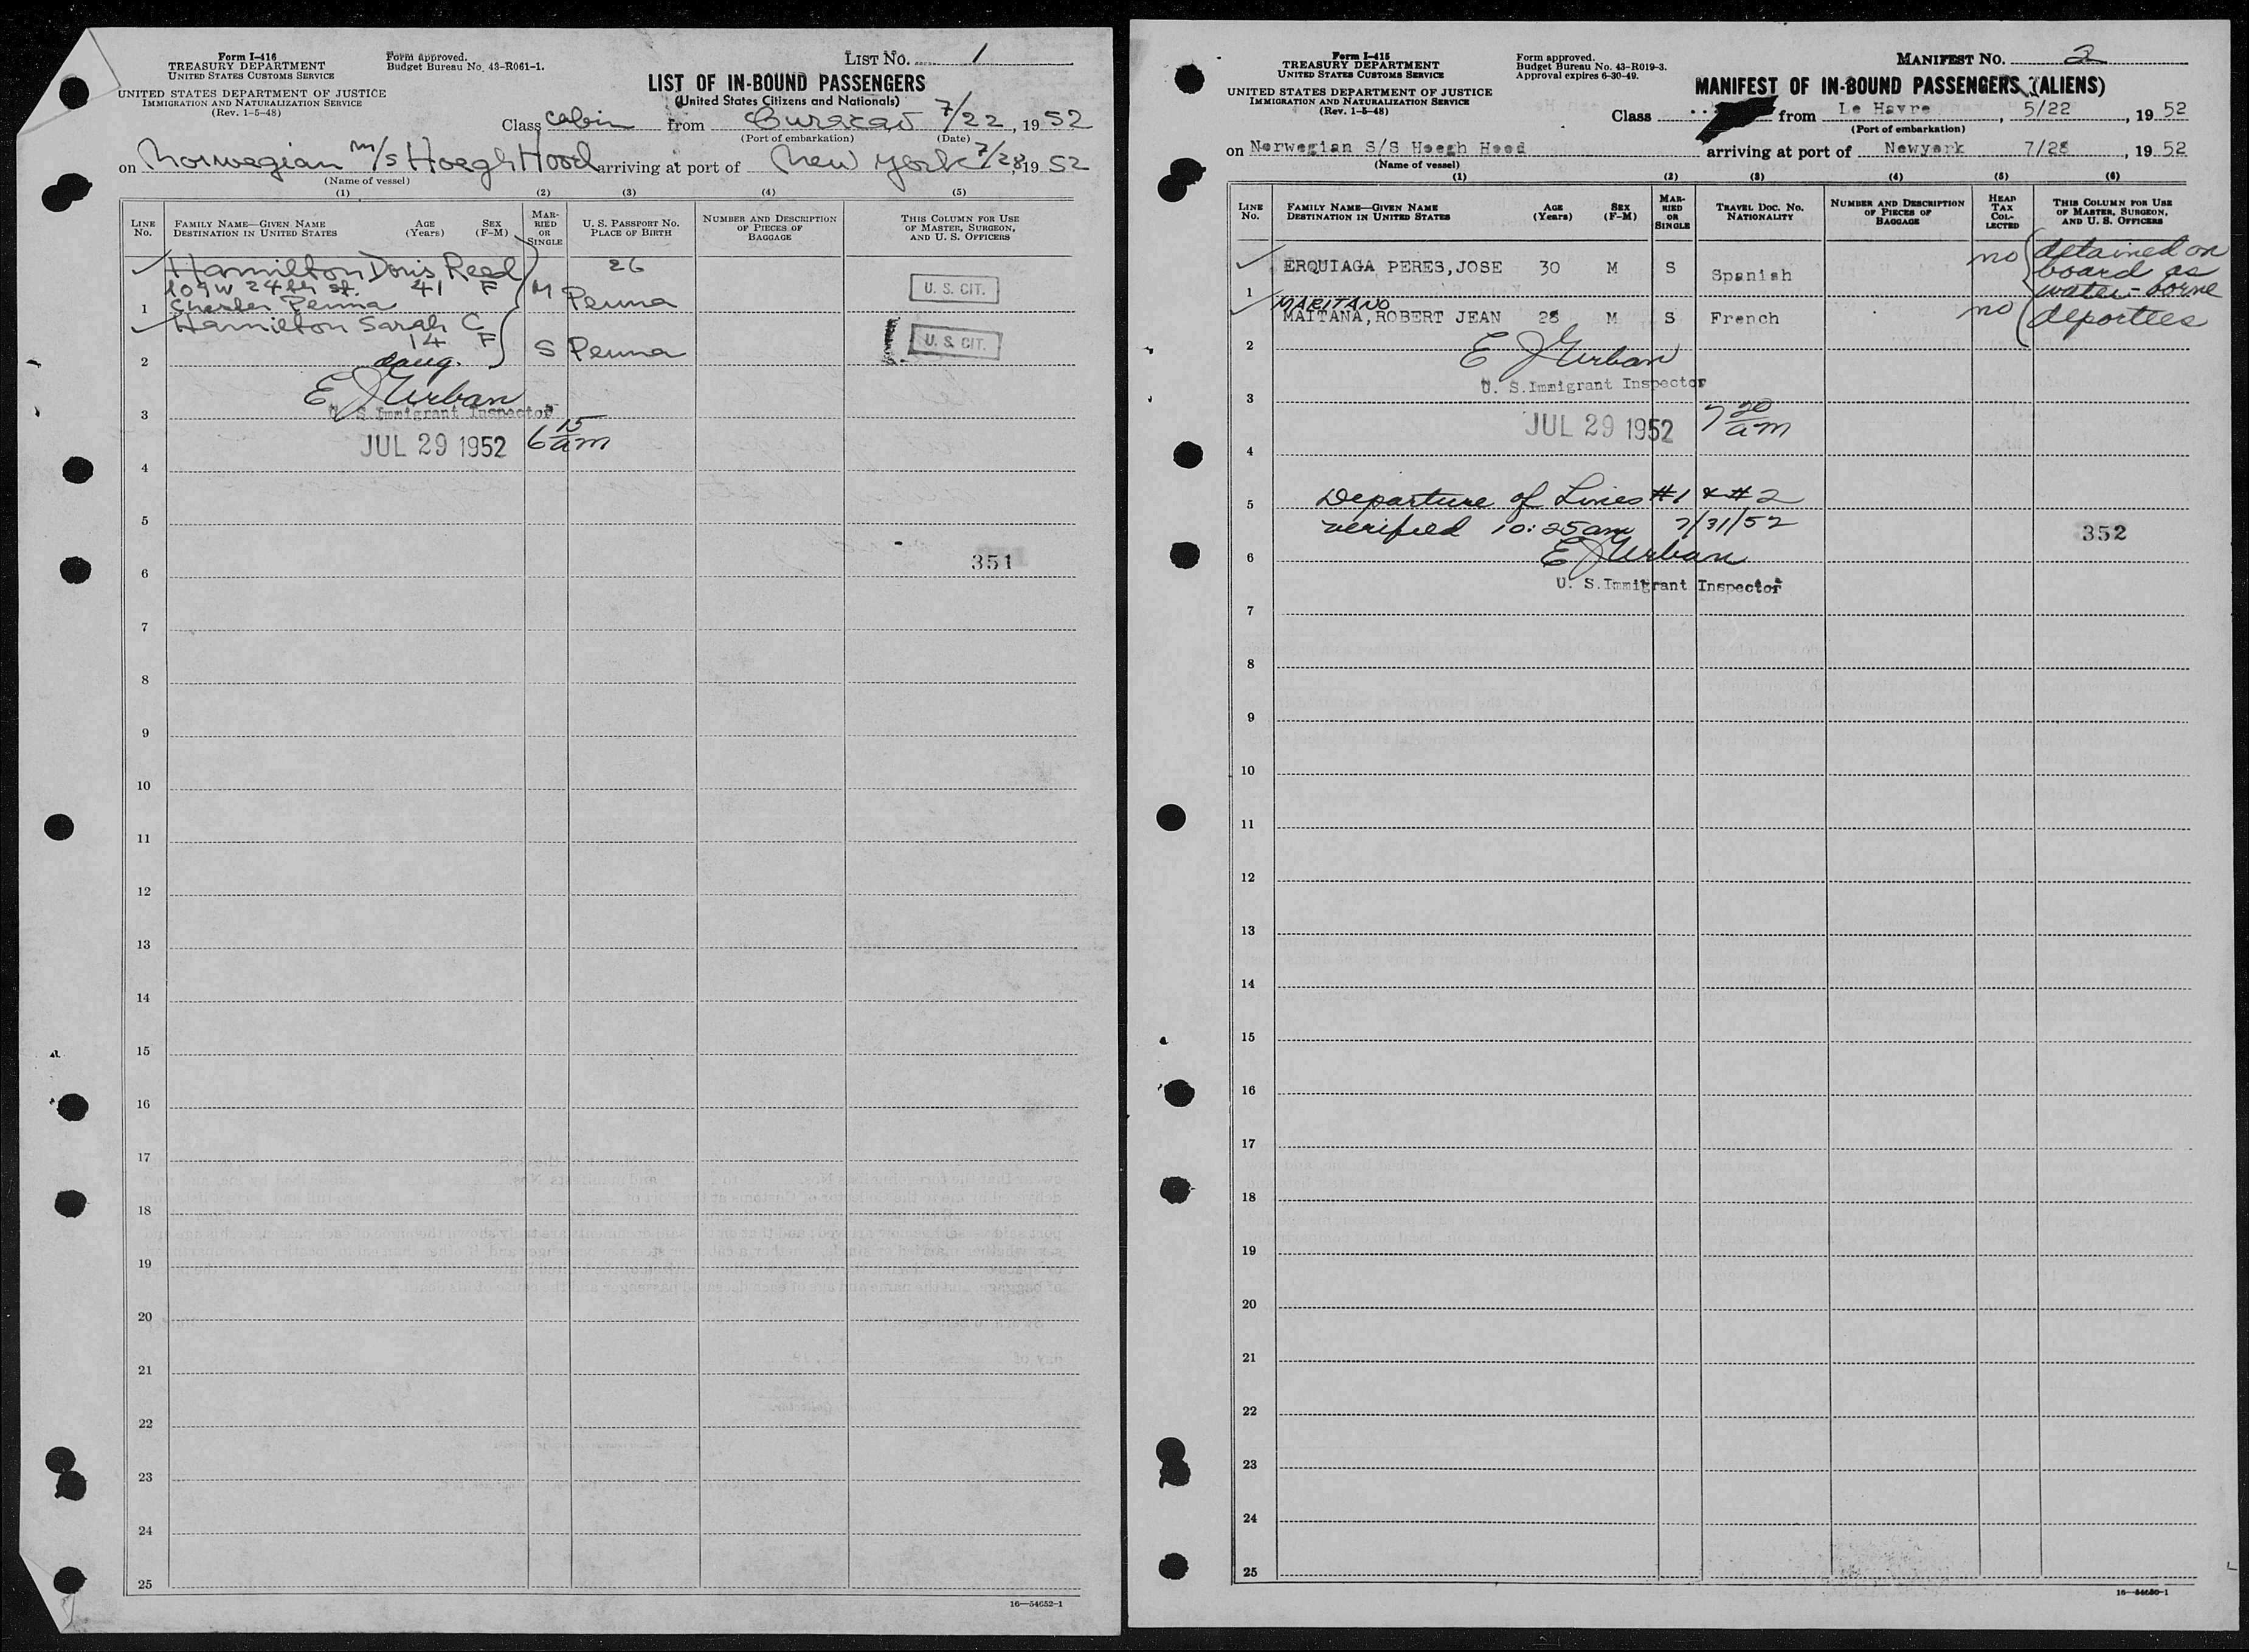 Form I-416
TREASURY DEPARTMENT
UNITED STATES CUSTOMS SERVICE
UNITED STATES DEPARTMENT OF JUSTICE
IMMIGRATION AND NATURALIZATION SERVICE
(Rev. 1-5-48)
Form approved.
Budget Bureau No. 43-R061-1.
LIST NO. 1
LIST OF IN-BOUND PASSENGERS
(United States Citizens and Nationals)
Class cabin from Curacao 7/22, 1952
(Port of embarkation) (Date)
on Norwegian m/s Hoegh Hood arriving at port of New York 7/28, 1952
(Name of vessel)
(1) (2) (3) (4) (5)
LINE No. FAMILY NAME—GIVEN NAME DESTINATION IN UNITED STATES AGE (Years) SEX (F-M) MARRIED OR SINGLE U. S. PASSPORT NO. PLACE OF BIRTH NUMBER AND DESCRIPTION OF PIECES OF BAGGAGE THIS COLUMN FOR USE OF MASTER, SURGEON, AND U. S. OFFICERS
Hamilton Doris Reed 26
109 W 24th St. 41 F M Penna U. S. CIT.
1 Chester Penna
Hamilton Sarah C
14 F S Penna U. S. CIT.
2 daug.
E J Urban
3 U. S. Immigrant Inspector
JUL 29 1952 6 15 am
4
5
6 351
7
8
9
10
11
12
13
14
15
16
17
18
19
20
21
22
23
24
25
16—54652-1
Form I-415
TREASURY DEPARTMENT
UNITED STATES CUSTOMS SERVICE
UNITED STATES DEPARTMENT OF JUSTICE
IMMIGRATION AND NATURALIZATION SERVICE
(Rev. 1-5-48)
Form approved.
Budget Bureau No. 43-R019-3.
Approval expires 6-30-49.
MANIFEST NO. 2
MANIFEST OF IN-BOUND PASSENGERS (ALIENS)
Class from Le Havre, 5/22, 1952
(Port of embarkation)
on Norwegian S/S Hoegh Hood arriving at port of Newyork 7/28, 1952
(Name of vessel)
(1) (2) (3) (4) (5) (6)
LINE No. FAMILY NAME—GIVEN NAME DESTINATION IN UNITED STATES AGE (Years) SEX (F-M) MARRIED OR SINGLE TRAVEL DOC. NO. NATIONALITY NUMBER AND DESCRIPTION OF PIECES OF BAGGAGE HEAD TAX COLLECTED THIS COLUMN FOR USE OF MASTER, SURGEON, AND U. S. OFFICERS
ERQUIAGA PERES, JOSE 30 M S Spanish no detained on
board as
1 water-borne
MARITANO
MAITANA, ROBERT JEAN 28 M S French no deportees
2 E J Urban
U. S. Immigrant Inspector
3
JUL 29 1952 7 20 am
4
Departure of Lines #1 & #2
5
verified 10:25 am 7/31/52 352
6 E J Urban
U. S. Immigrant Inspector
7
8
9
10
11
12
13
14
15
16
17
18
19
20
21
22
23
24
25